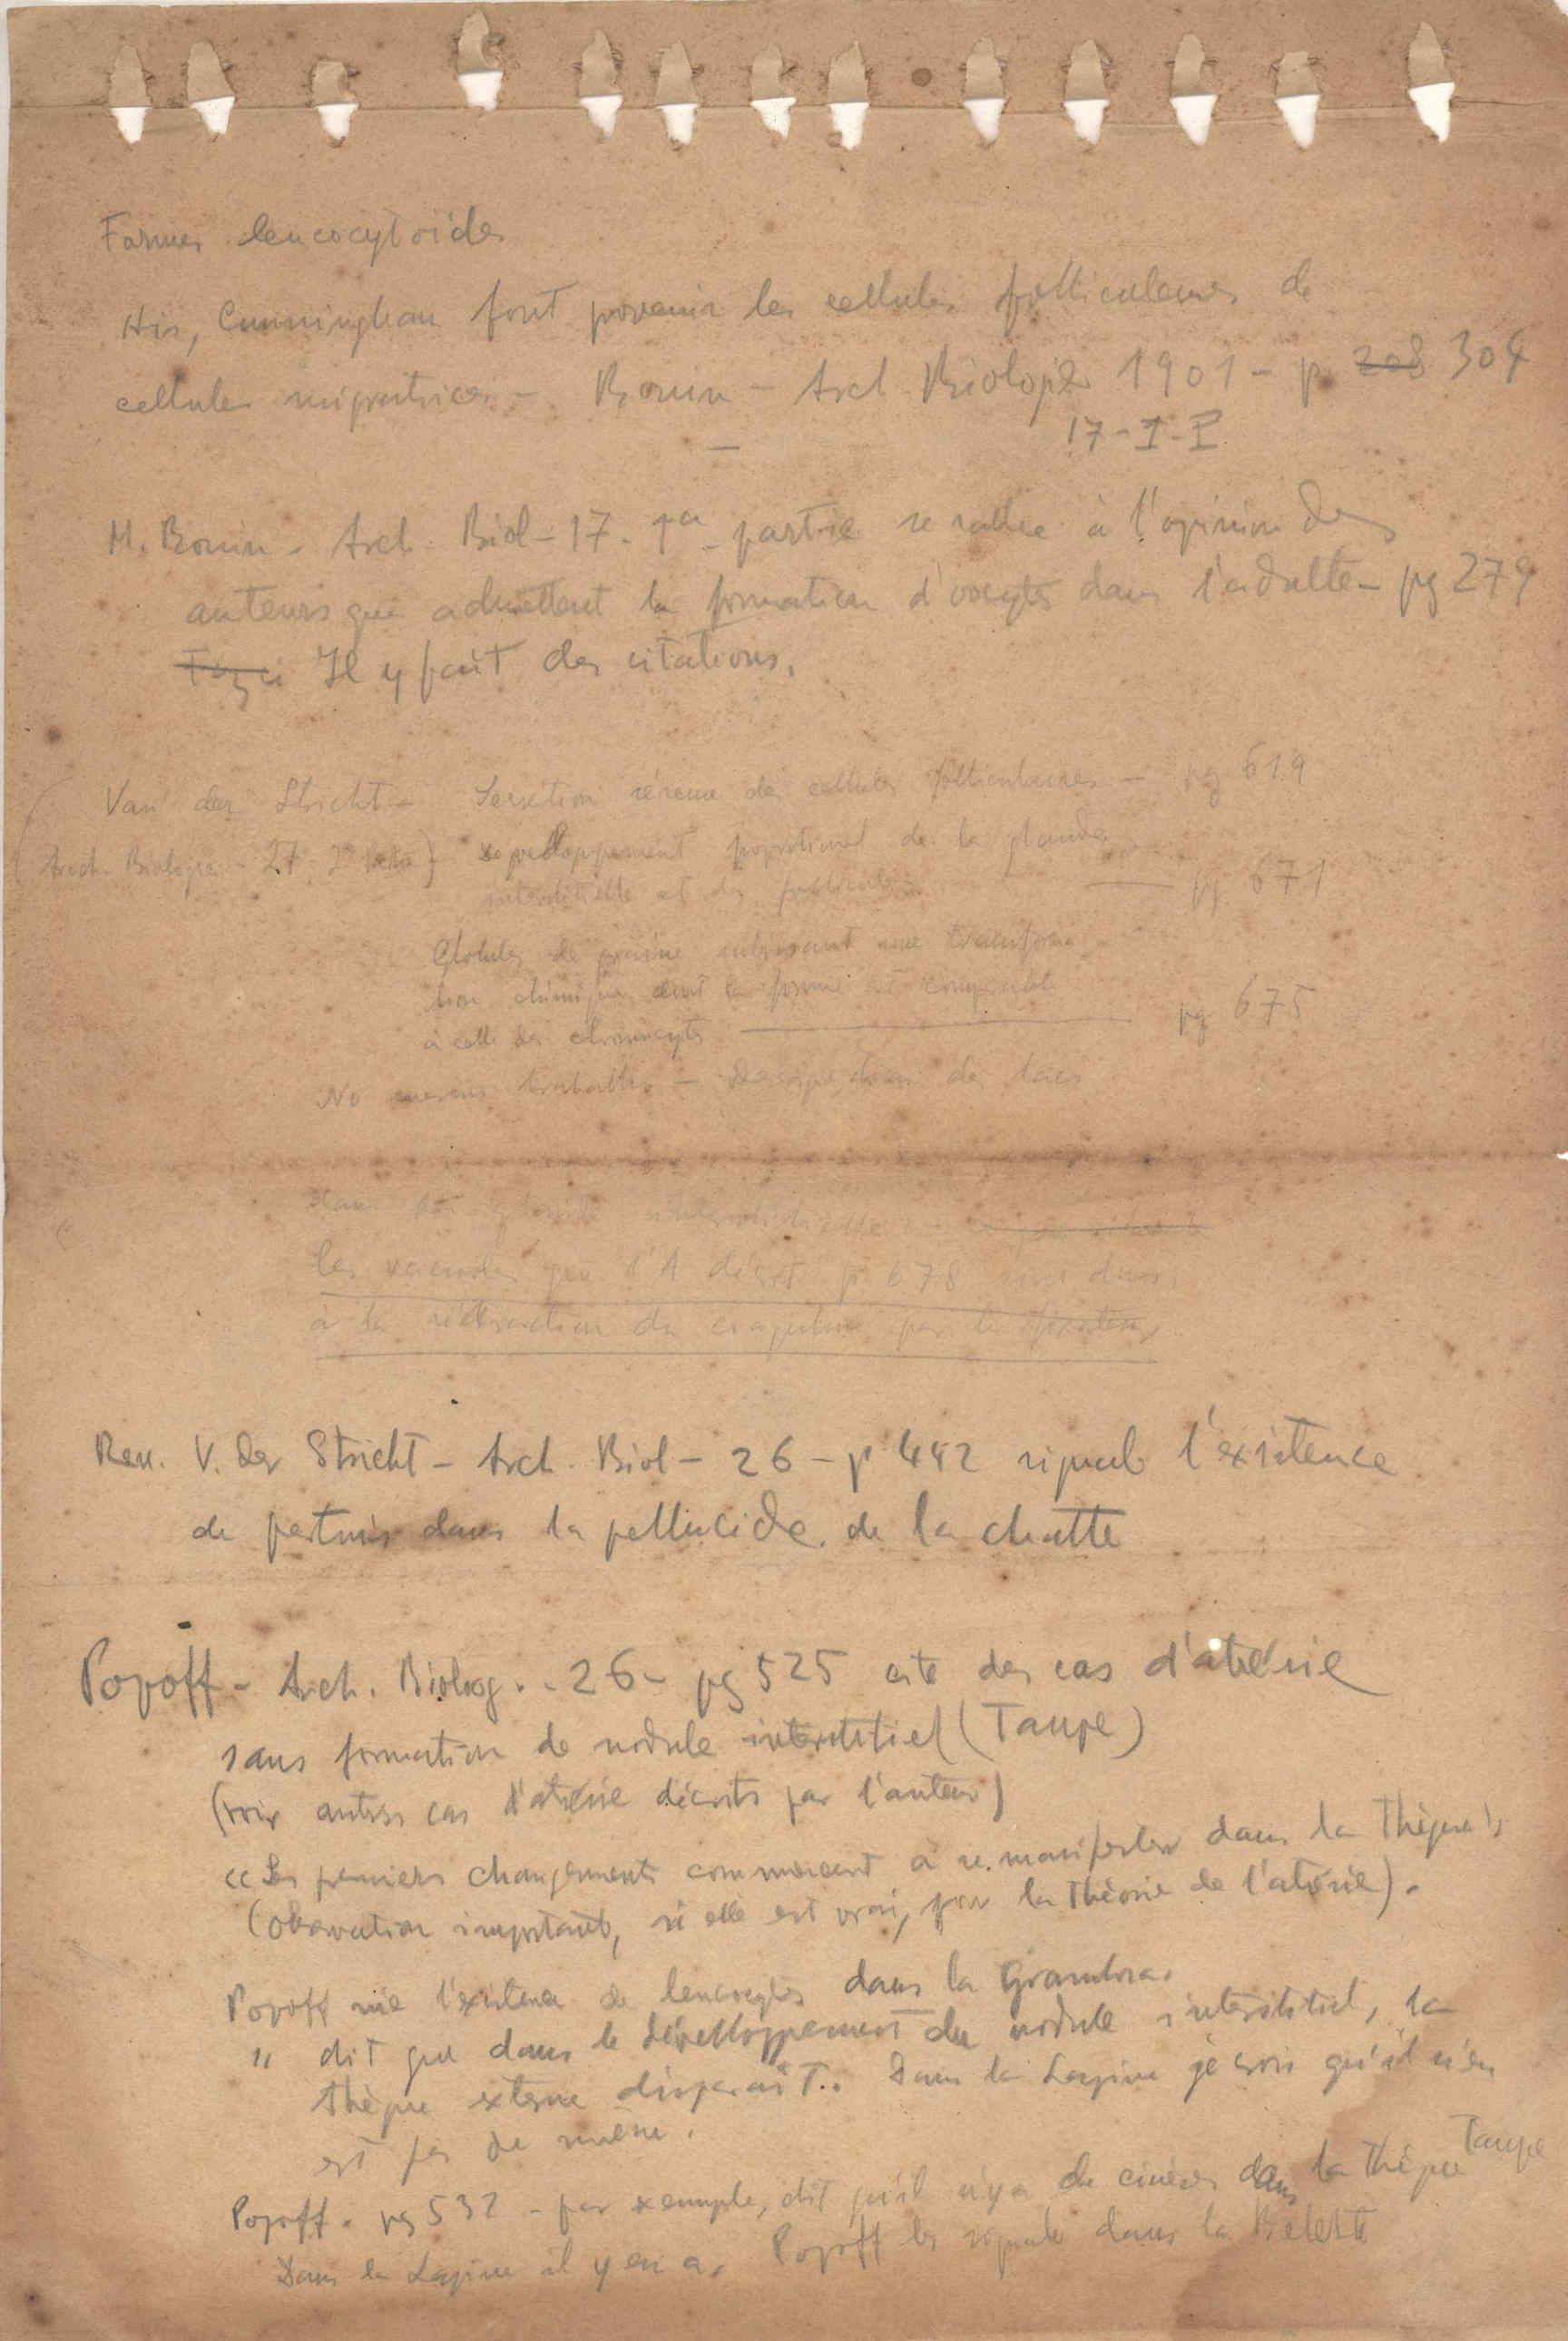 Formes leucocytoïdes
His, Cunningham font provenir les cellules folliculaires de
cellules migratrices - Bouin - Arch Biologie 1901 - p. 208 304
17-I-P
M. Bouin - Arch. Biol - 17 - 1ª partie se rallie à l'opinion des
auteurs qui admettent la formation d'oocytes dans l'adulte - pg 279
Il y fait des citations.
Van der Stricht - Sécrétion séreuse des cellules folliculaires - pg 619
Arch. Biologie - 27 développement proportionnel de la glande
interstitielle et des follicules pg 671
Globules de graisse subissant une transforma
tion chimique dont la forme est comparable
à celle des chromocytes pg 675
No
dans la glande interstitielle
les vacuoles que l'A décrit p 678 sont dues
à la rétraction du par le
Rev. V. der Stricht - Arch. Biol - 26 - p 442 signale l'existence
de pertuis dans la pellucide de la chatte
Popoff - Arch. Biolog. - 26 - pg 525 cite des cas d'atrésie
sans formation de nodule interstitiel (Taupe)
(voir autres cas d'atrésie décrits par l'auteur)
<< Les premiers changements commencent à se manifester dans la Thèque >>
(observation importante, si elle est vrai, pour la théorie de l'atrésie).
Popoff nie l'existence de leucocytes dans la Granulosa.
" dit que dans le développement du nodule interstitiel, la
thèque externe disparaît.. Dans la Lapine je crois qu'il n'en
est pas de même.
Popoff. pg 532 - par exemple, dit qu'il n'y a de cinèses dans la thèque Taupe
Dans la Lapine il y en a. Popoff les signale dans la Belette